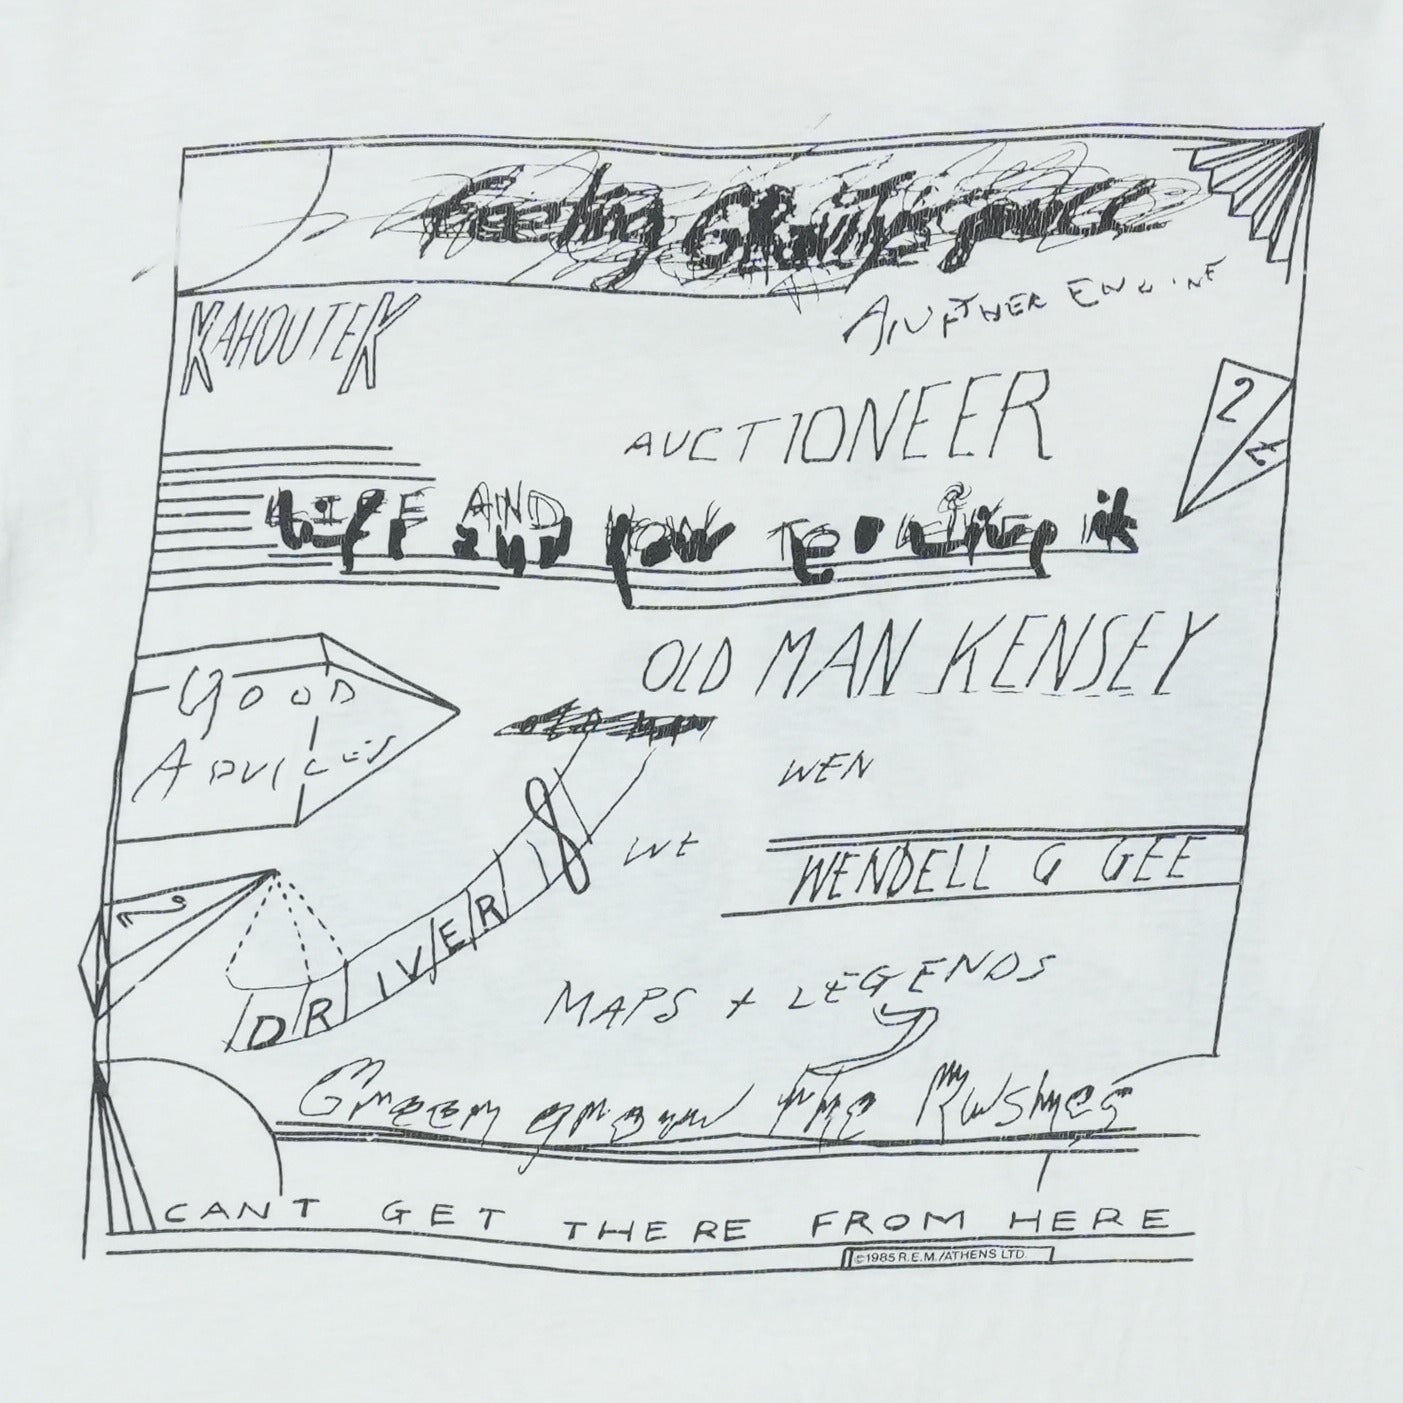 Feeling Gravitys pull
KAHOUTEK
ANOTHER ENGINE
AUCTIONEER
2
LIFE AND HOW TO LIVE it
OLD MAN KENSEY
GOOD
ADVICES
WEN
DRIVER 8
WE
WENDELL G GEE
2
MAPS + LEGENDS
Green grow the Rushes
CANT GET THERE FROM HERE
©1985 R.E.M./ATHENS LTD.